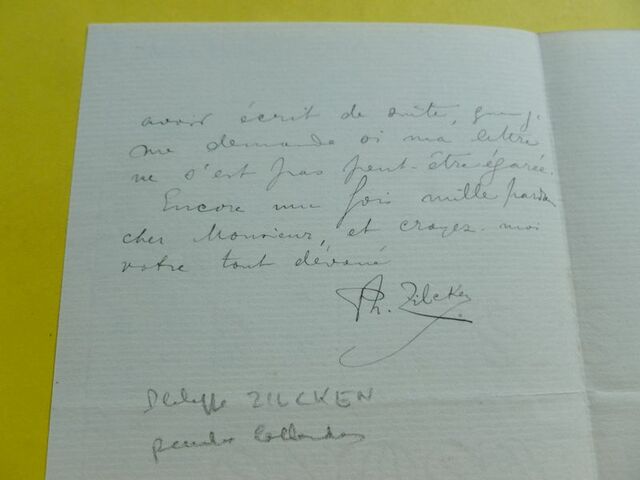 avoir écrit de suite, que j.
me demande si ma lettre
ne s'est pas peut-être égarée.
Encore une fois mille pardon
cher Monsieur, et croyez-moi
votre tout dévoué
Ph. Zilcken
Philippe ZILCKEN
peintre hollandais